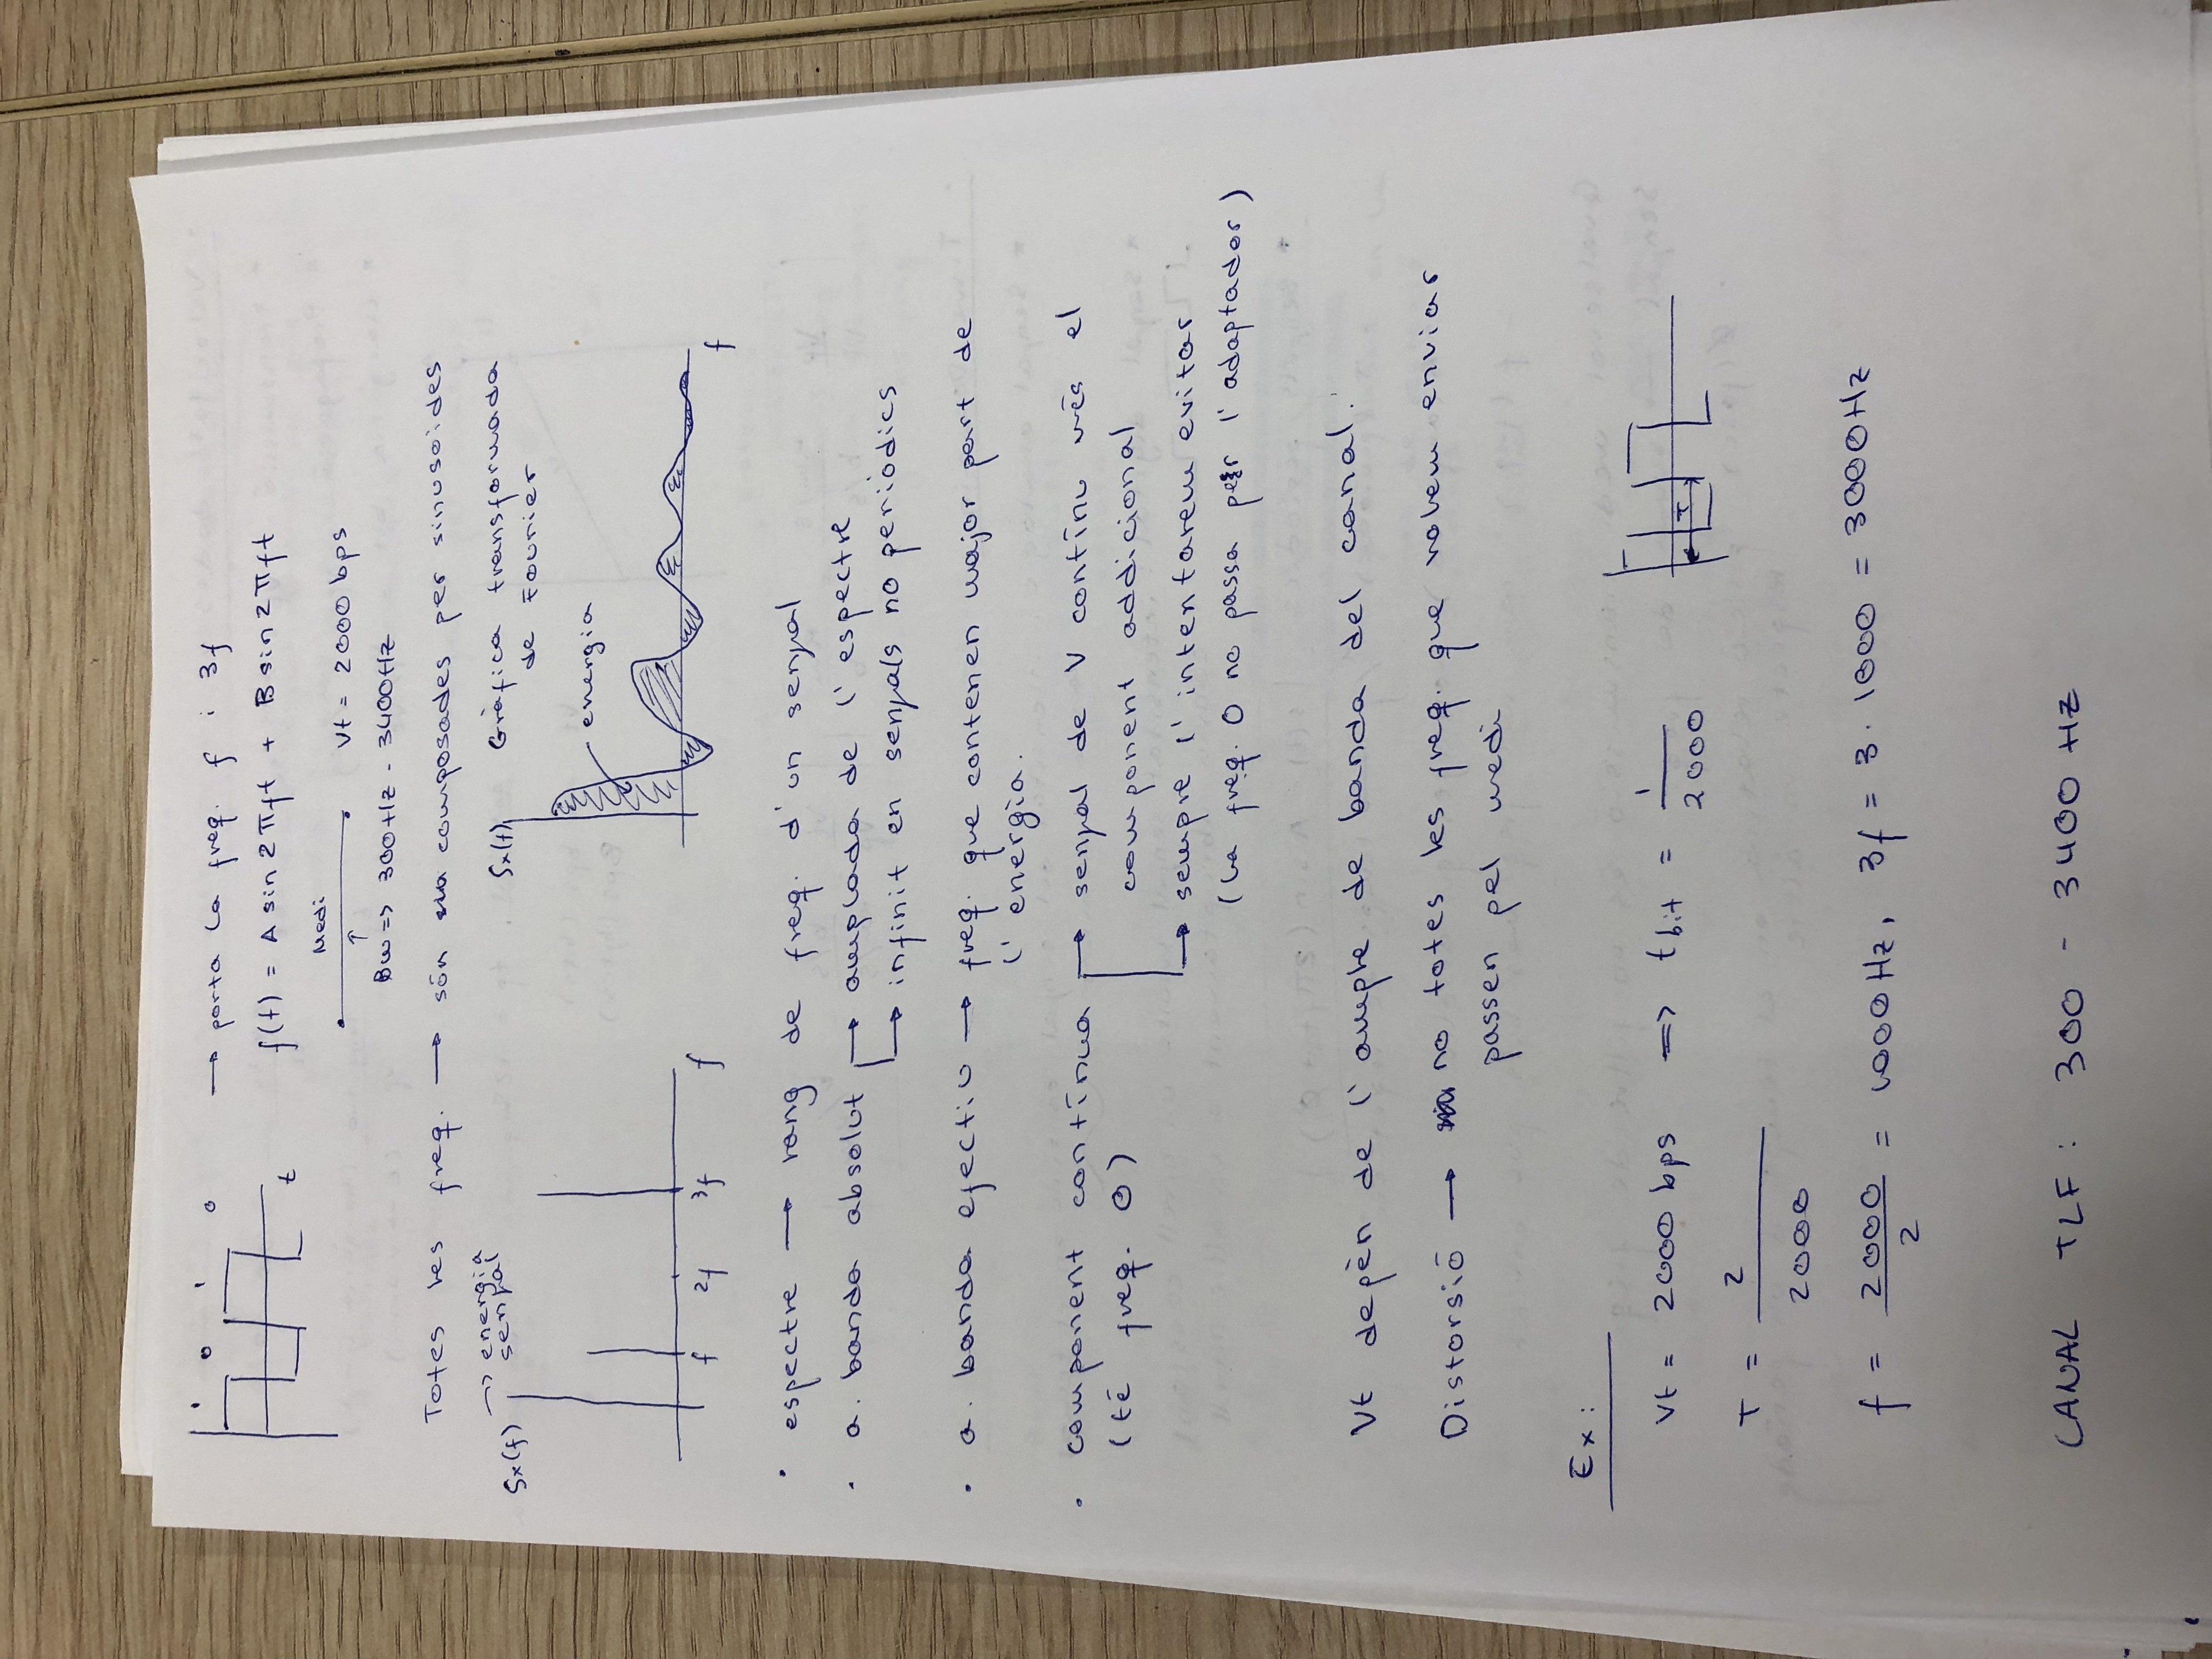 1 0 1 0
→ porta la freq. f i 3f
t
f(t) = A sin 2πft + B sin 2πft
Medi
Vt = 2000 bps
Bw => 300Hz - 3400Hz
Totes les freq. → són composades per sinusoides
→ energia
senyal
Sx(f)
f 2f 3f f
Sx(f)
Gràfica transformada
de Fourier
energia
f
· espectre → rang de freq. d'un senyal
· a. banda absolut → amplada de l'espectre
→ infinit en senyals no periòdics
· a. banda efectiu → freq. que contenen major part de
l'energia.
· component contínua → senyal de V contínu més el
(té freq. 0)
component addicional
→ sempre l'intentarem evitar
(la freq. 0 no passa per l'adaptador)
Vt depèn de l'ample de banda del canal.
Distorsió → no totes les freq. que volem enviar
passen pel medi
Ex:
Vt = 2000 bps => tbit = 1/2000
T
T = 2/2000
f = 2000/2 = 1000Hz, 3f = 3·1000 = 3000Hz
CANAL TLF: 300 - 3400 Hz